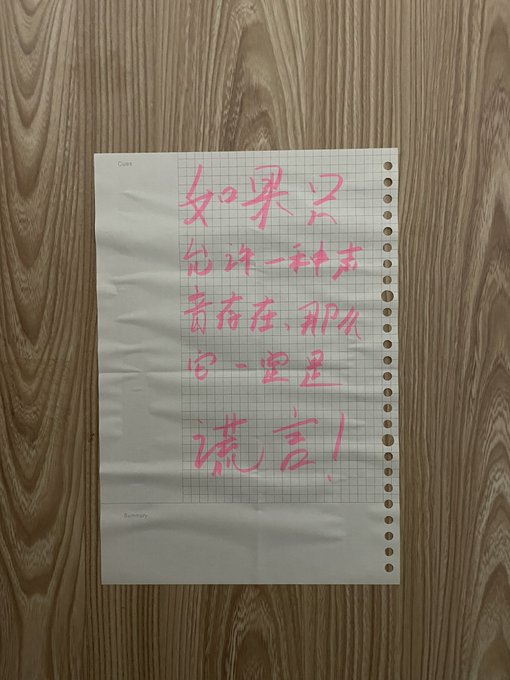 Cues
如果只
允许一种声
音存在、那么
它一定是
谎言！
Summary